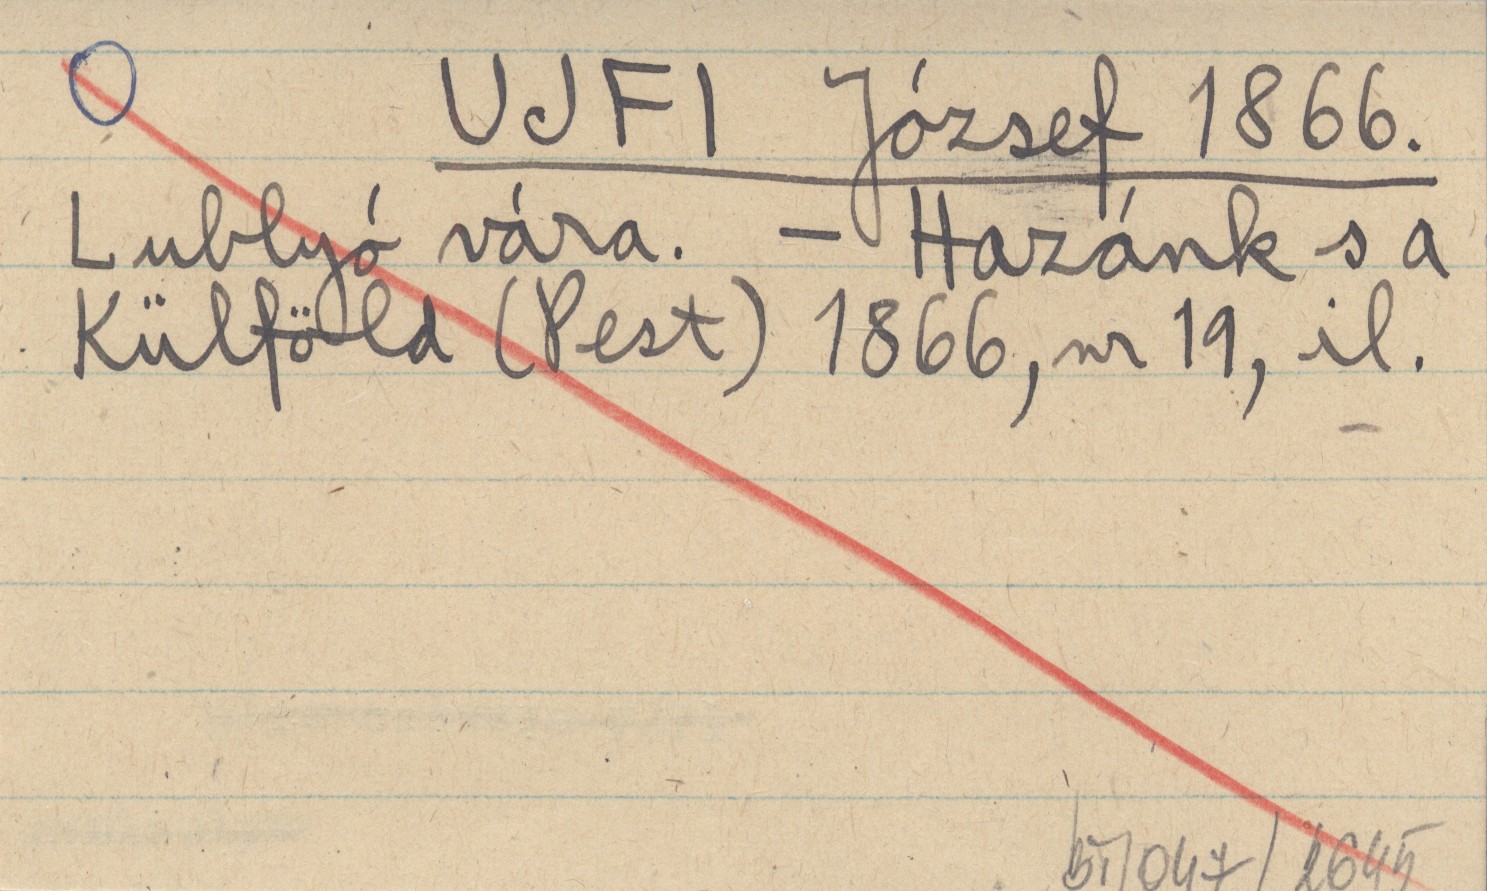 UJFI József 1866.
Lublyó vára. – Hazánk s a
Külföld (Pest) 1866, nr 19, il.